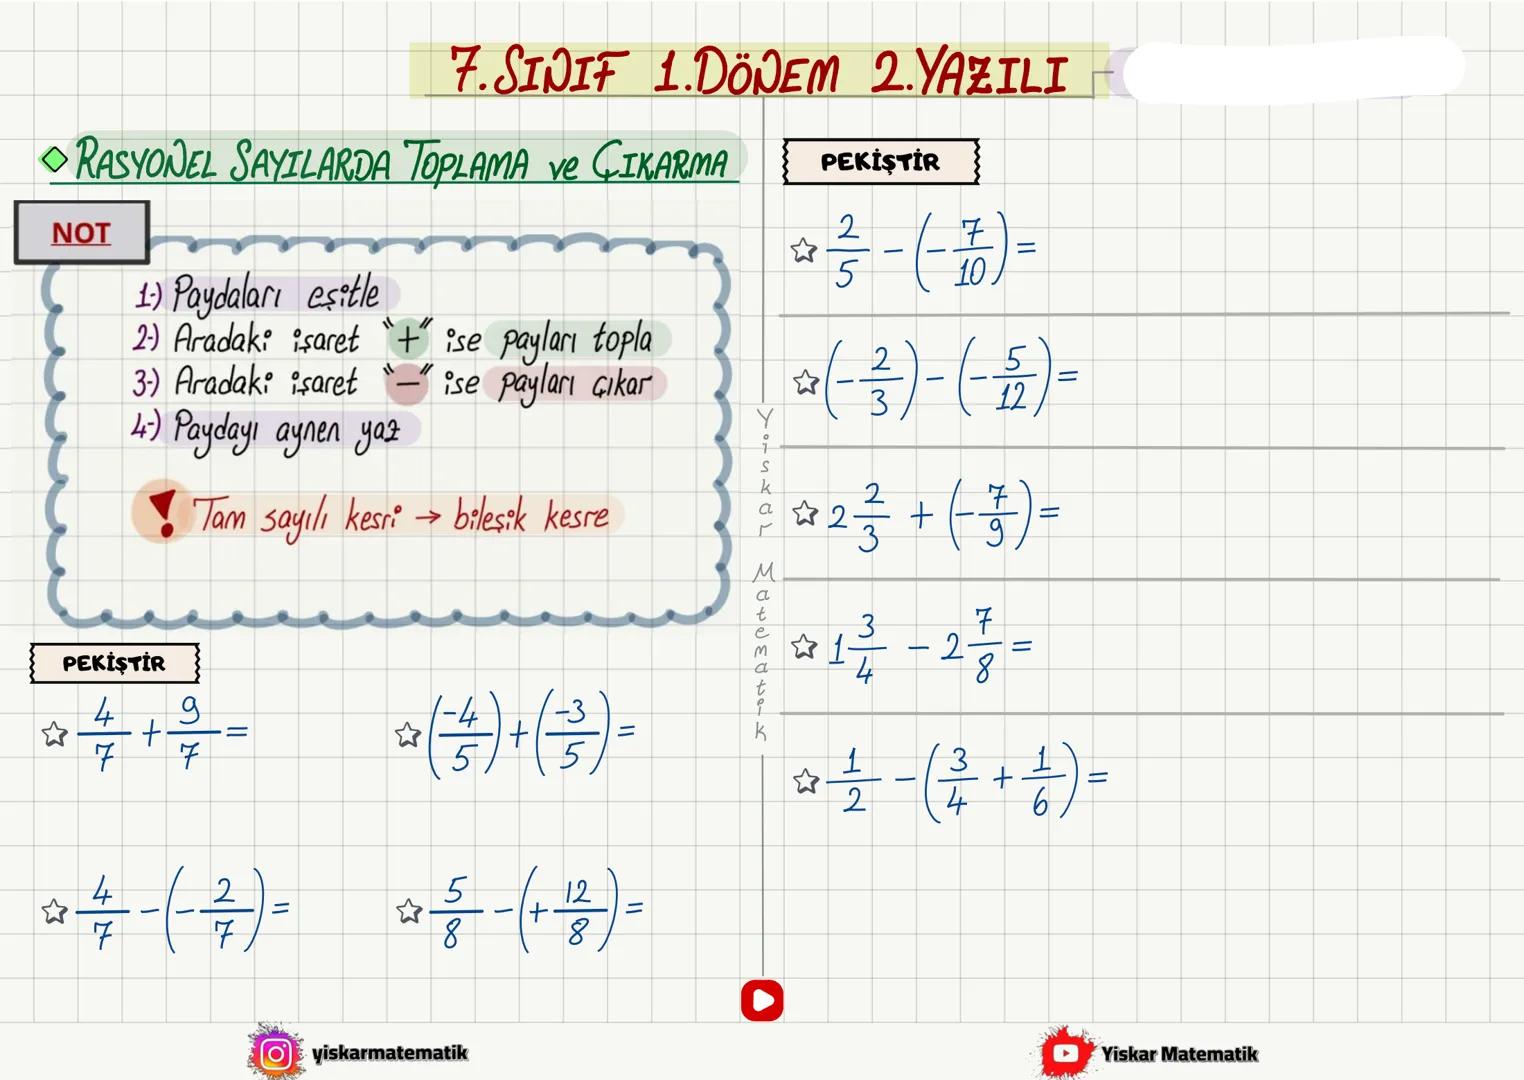 7.SINIF 1.DÖNEM 2.YAZILI
RASYONEL SAYILARDA TOPLAMA ve ÇIKARMA
NOT
1-) Paydaları eşitle
2-) Aradaki işaret "+" ise payları topla
3-) Aradaki işaret "−" ise payları çıkar
4-) Paydayı aynen yaz
! Tam sayılı kesri → bileşik kesre
PEKİŞTİR
☆ 4/7 + 9/7 =
☆ (-4/5) + (-3/5) =
☆ 4/7 - (-2/7) =
☆ 5/8 - (+12/8) =
Yiskar Matematik
PEKİŞTİR
☆ 2/5 - (-7/10) =
☆ (-2/3) - (-5/12) =
☆ 2 2/3 + (-7/9) =
☆ 1 3/4 - 2 7/8 =
☆ 1/2 - (3/4 + 1/6) =
yiskarmatematik
Yiskar Matematik